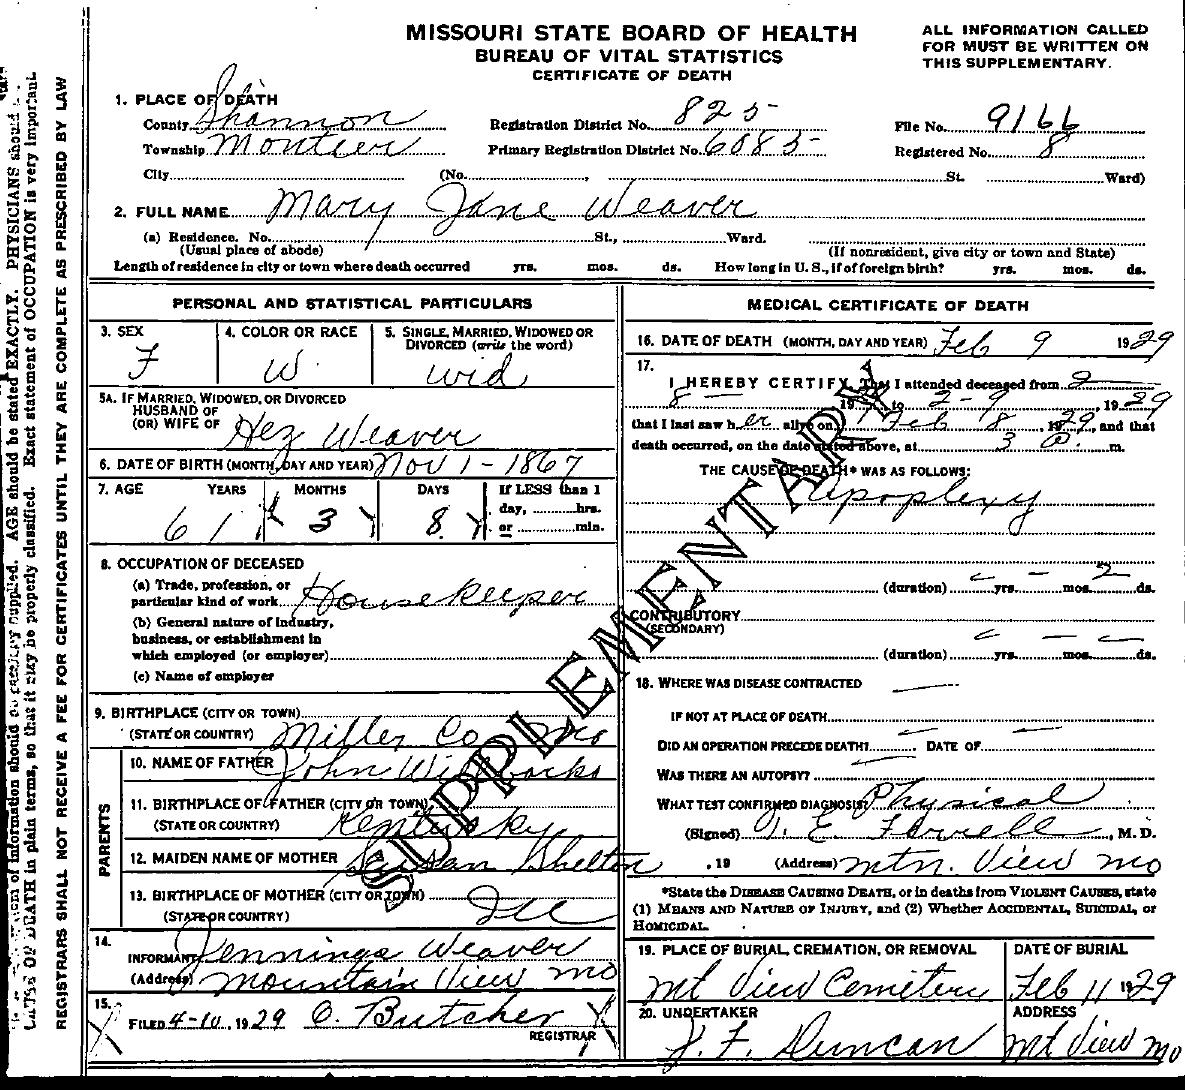 MISSOURI STATE BOARD OF HEALTH
BUREAU OF VITAL STATISTICS
CERTIFICATE OF DEATH
ALL INFORMATION CALLED
FOR MUST BE WRITTEN ON
THIS SUPPLEMENTARY.
1. PLACE OF DEATH
County Shannon Registration District No. 825 File No. 9166
Township Montier Primary Registration District No. 6085 Registered No. 8
City (No. , St. Ward)
2. FULL NAME Mary Jane Weaver
(a) Residence. No. St., Ward.
(Usual place of abode) (If nonresident, give city or town and State)
Length of residence in city or town where death occurred yrs. mos. ds. How long in U. S., if of foreign birth? yrs. mos. ds.
PERSONAL AND STATISTICAL PARTICULARS
3. SEX 4. COLOR OR RACE 5. SINGLE, MARRIED, WIDOWED OR
DIVORCED (write the word)
F W. wid
5A. IF MARRIED, WIDOWED, OR DIVORCED
HUSBAND OF
(OR) WIFE OF Hez Weaver
6. DATE OF BIRTH (MONTH, DAY AND YEAR) Nov 1 - 1867
7. AGE YEARS MONTHS DAYS If LESS than 1
day, hrs.
or min.
61 3 8
8. OCCUPATION OF DECEASED
(a) Trade, profession, or
particular kind of work Housekeeper
(b) General nature of industry,
business, or establishment in
which employed (or employer)
(c) Name of employer
9. BIRTHPLACE (CITY OR TOWN)
(STATE OR COUNTRY) Miller Co Mo
PARENTS
10. NAME OF FATHER John
11. BIRTHPLACE OF FATHER (CITY OR TOWN)
(STATE OR COUNTRY) Kentucky
12. MAIDEN NAME OF MOTHER Susan Shelton
13. BIRTHPLACE OF MOTHER (CITY OR TOWN)
(STATE OR COUNTRY) Ill
14.
INFORMANT Jennings Weaver
(Address) Mountain View Mo
15.
FILED 4-10, 1929 O. Butcher
REGISTRAR
MEDICAL CERTIFICATE OF DEATH
16. DATE OF DEATH (MONTH, DAY AND YEAR) Feb 9 1929
17.
I HEREBY CERTIFY, That I attended deceased from 2 —
8 — 19 to 2-9, 1929
that I last saw her alive on Feb 8, 1929, and that
death occurred, on the date stated above, at 3 a. m.
THE CAUSE OF DEATH* WAS AS FOLLOWS:
Apoplexy
(duration) yrs. mos. 2 ds.
CONTRIBUTORY
(SECONDARY)
(duration) yrs. mos. ds.
18. WHERE WAS DISEASE CONTRACTED
IF NOT AT PLACE OF DEATH
DID AN OPERATION PRECEDE DEATH? DATE OF
WAS THERE AN AUTOPSY?
WHAT TEST CONFIRMED DIAGNOSIS? Physical
(Signed) E. , M. D.
, 19 (Address) Mtn. View Mo
*State the DISEASE CAUSING DEATH, or in deaths from VIOLENT CAUSES, state
(1) MEANS AND NATURE OF INJURY, and (2) Whether ACCIDENTAL, SUICIDAL, or
HOMICIDAL.
19. PLACE OF BURIAL, CREMATION, OR REMOVAL DATE OF BURIAL
Mt View Cemetery Feb 11 1929
20. UNDERTAKER ADDRESS
J. F. Duncan Mt View Mo
SUPPLEMENTARY
information should be supplied. AGE should be stated EXACTLY. PHYSICIANS should
OF DEATH in plain terms, so that it may be properly classified. Exact statement of OCCUPATION is very important.
REGISTRARS SHALL NOT RECEIVE A FEE FOR CERTIFICATES UNTIL THEY ARE COMPLETE AS PRESCRIBED BY LAW